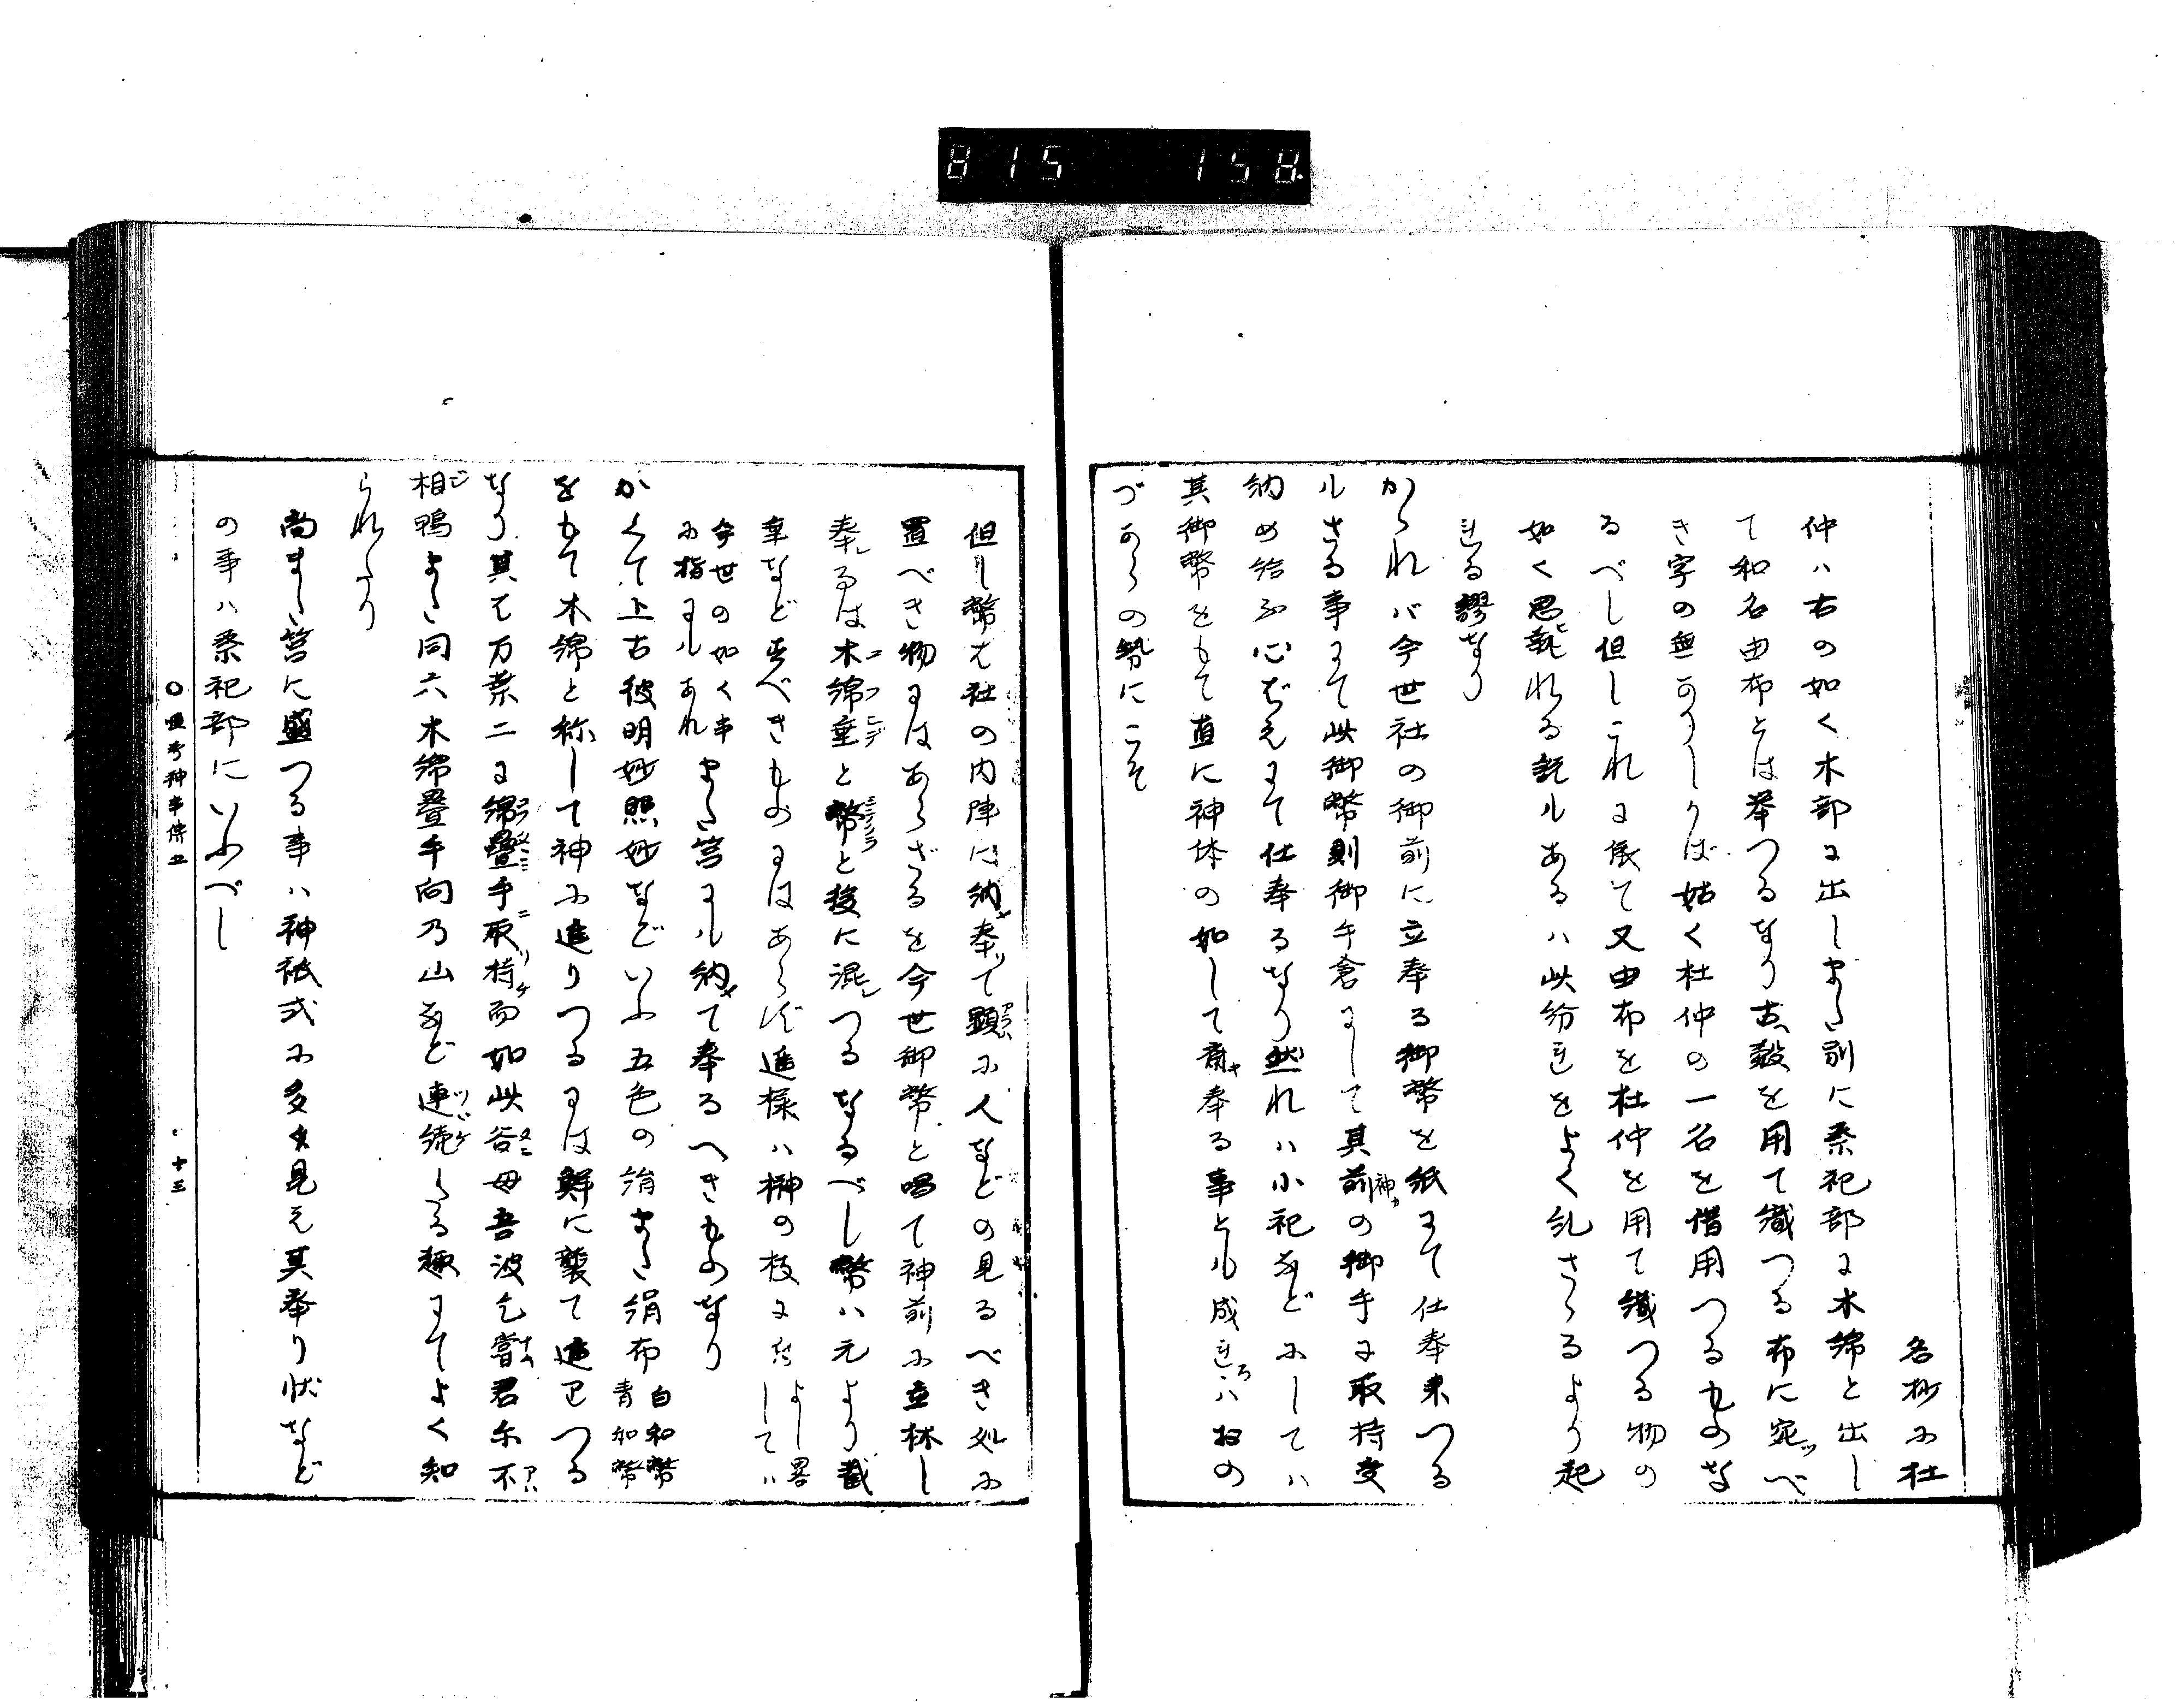 815 158
名抄ふ杜
仲ハ右の如く木部に出しまた別に祭祀部に木綿と出し
て和名由布とは挙つるなり古穀を用て織つる布に宛ツべ
き字の無かりしかば姑く杜仲の一名を借用つるものな
るべし但しこれに依て又由布を杜仲を用て織つる物の
如く思執れる説ルあるハ此紛れをよく糺さゝるより起
れる謬なり
かゝれバ今世社の御前に立奉る御幣を紙にて仕奉来つる
ルさる事にて此御幣則御手倉にして其前の御手に取持受
神カ
納め給ふ心ばえにて仕奉るなり然れハ小祀などふしてハ
其御幣をもて直に神体の如して斎キ奉る事とル成れゝハおの
づからの勢にこそ
但し幣は社の内陣に納メ奉ッて顕ふ人などの見るべき処ふ
置べき物にはあらざるを今世御幣と唱て神前ふ立林し
奉レるは木綿垂と幣と後に混レつるなるべし幣ハ元より截
垂など為べきものにはあらず進様ハ榊の枝に
よし畧
してハ
今世の如く串
ふ指にルあれ
また筥にル納メて奉るへきものなり
かくて上古彼明妙照妙などいふ五色の絹また絹布
白和幣
青和幣
をもて木綿と称して神ふ進りつるには鮮に襲て進りつる
なり其は万葉二に綿疊手取持而如此谷母吾波乞嘗君尓不
相鴨また同六木綿疊手向乃山など連続たる趣にてよく知
られたり
尚また筥に盛つる事ハ神祇式ふ多く見え其奉り状など
の事ハ祭祀部にいふべし
十三